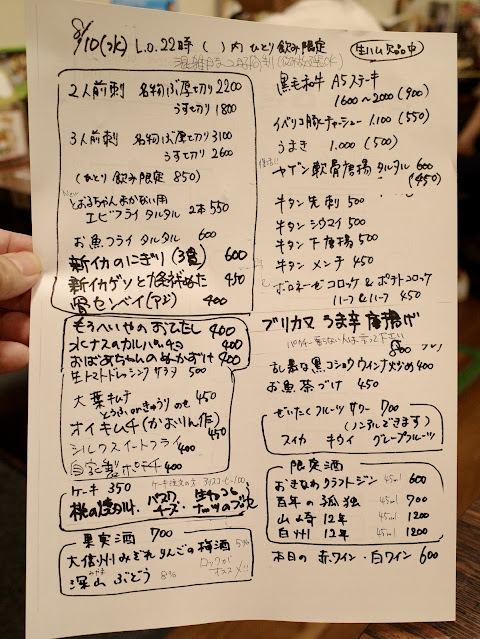 8/10(水) L.O.22時 ( )内 ひとり飲み限定
生ハム欠品中
2人前刺 名物ぶ厚切り 2200
うす切り 1800
3人前刺 名物ぶ厚切り 3100
うす切り 2600
(ひとり飲み限定 850)
New
とおるちゃんまかない用
エビフライタルタル 2本 550
お魚フライタルタル 600
新イカのにぎり(3貫) 600
新イカゲソと 450
骨センベイ(アジ) 400
もろへいやのおひたし 400
水ナスのカルパッチョ 400
おばあちゃんのぬかづけ 400
生トマトドレッシングサラダ 500
大葉キムチ 450
とうふorきゅうりのせ
オイキムチ(かおりん作) 450
シルクスイートフライ 400
自家製ポテチ 400
ケーキ 350
ケーキ注文の方 アイスコーヒー100
桃の
バスク
チーズ
果実酒 700
大信州みぞれりんごの梅酒 5%
深山ぶどう 8%
ロックが
オススメ!!
黒毛和牛 A5ステーキ
1600〜2000 (900)
イベリコ豚チャーシュー 1.100 (550)
うまき 1.000 (500)
復活!!
ヤゲン軟骨唐揚タルタル 600
(450)
牛タン先刺 500
牛タンシウマイ 500
牛タン下唐揚 500
牛タンメンチ 450
ボロネーゼコロッケ&ポテトコロッケ
ハーフ&ハーフ 450
ブリカマ うま辛唐揚げ
パクチー要らない人は言って下さい
800
黒コショウウインナ炒め 400
お魚茶づけ 450
ぜいたくフルーツサワー 700
(ノンアルできます)
スイカ キウイ グレープフルーツ
限定酒
おきなわクラフトジン 45ml 600
百年の孤独 45ml 700
山崎12年 45ml 1200
白州12年 45ml 1200
本日の赤ワイン・白ワイン 600